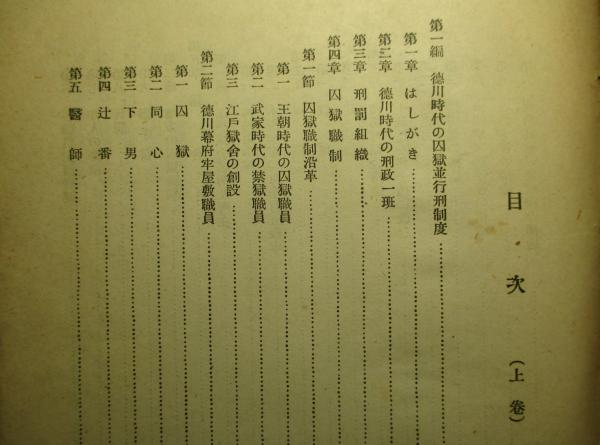 目次（上卷）
第一編 德川時代の囚獄並行刑制度
第一章 はしがき
第二章 德川時代の刑政一班
第三章 刑罰組織
第四章 囚獄職制
第一節 囚獄職制沿革
第一 王朝時代の囚獄職員
第二 武家時代の禁獄職員
第三 江戶獄舍の創設
第二節 德川幕府牢屋敷職員
第一 囚獄
第二 同心
第三 下男
第四 辻番
第五 醫師